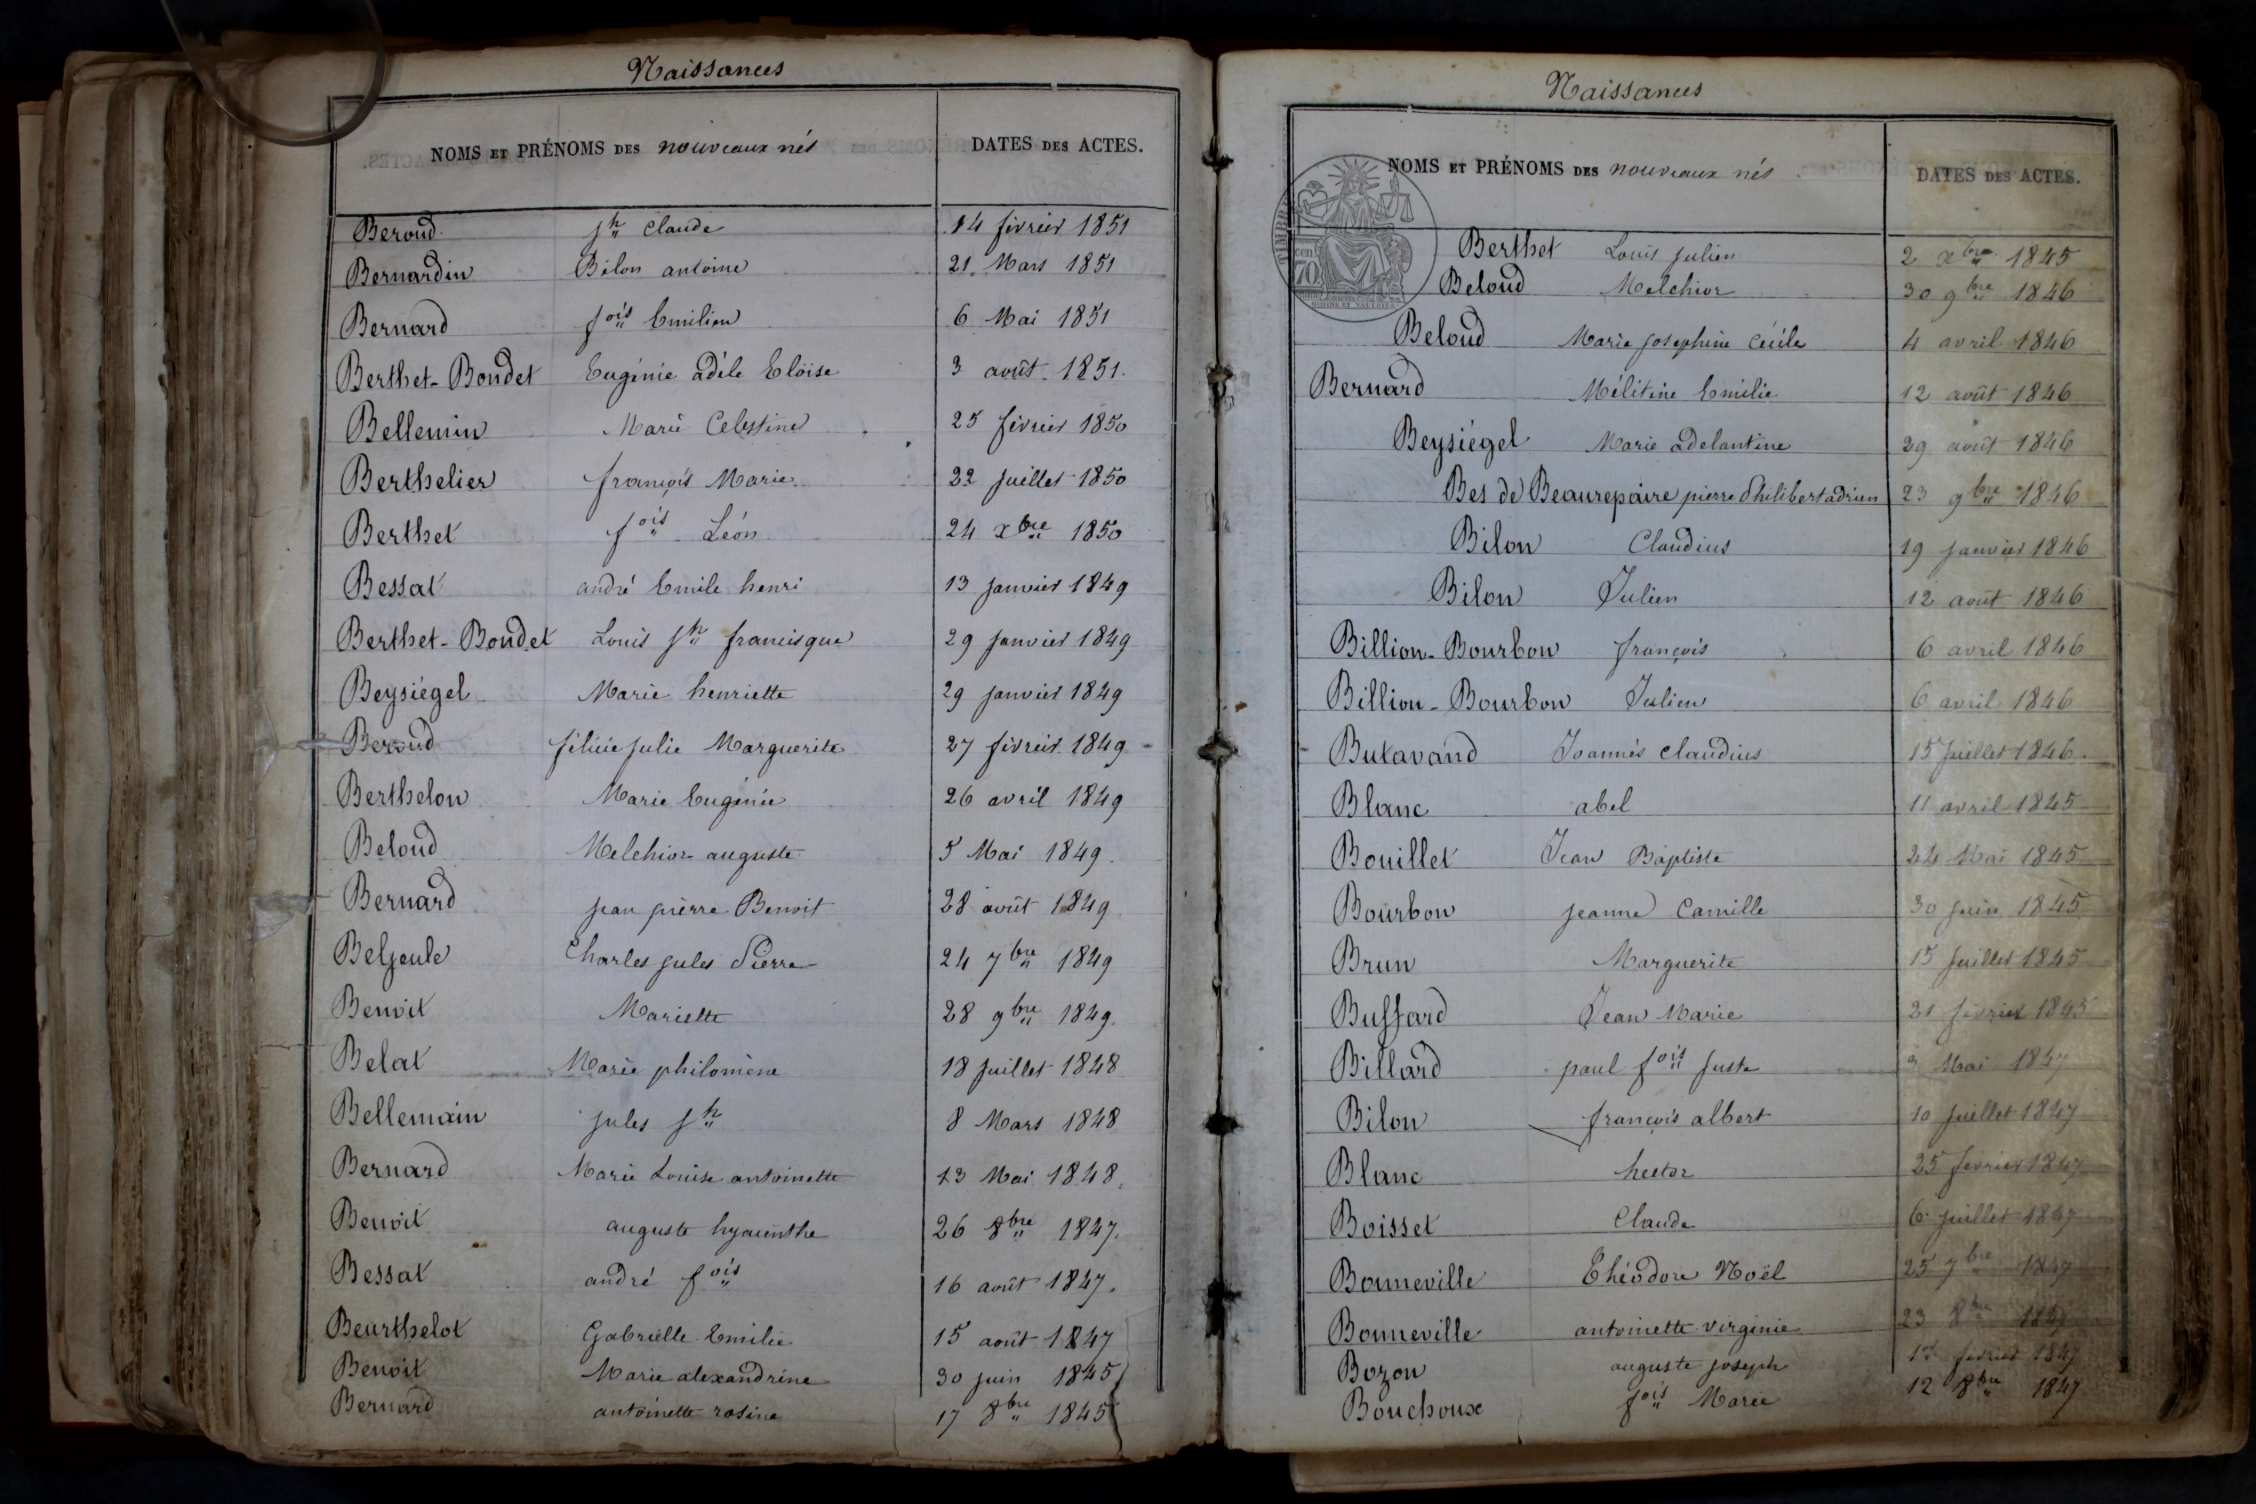 Naissances
NOMS ET PRÉNOMS DES nouveaux nés DATES DES ACTES.
Beroud jh Claude 14 février 1851
Bernardin Bilon antoine 21 Mars 1851
Bernard fois Emilien 6 Mai 1851
Berthet-Bondet Eugénie adèle Eloïse 3 août 1851.
Bellemin Marie Celestine 25 février 1850
Berthelier françois Marie 22 juillet 1850
Berthet fois Léon 24 xbre 1850
Bessat andré Emile henri 13 janvier 1849
Berthet-Bondet Louis jh francisque 29 janvier 1849
Beysiégel Marie henriette 29 janvier 1849
Beroud félicie julie Marguerite 27 février 1849
Berthelon Marie Eugénie 26 avril 1849
Beloud Melchior auguste 5 Mai 1849.
Bernard jean pierre Benoit 28 août 1849
Beljeule Charles jules Pierre 24 7bre 1849
Benoit Mariette 28 9bre 1849.
Belat Marie philomène 18 juillet 1848
Bellemain jules jh 8 Mars 1848
Bernard Marie Louise antoinette 13 Mai 1848.
Benoit auguste hyacinthe 26 8bre 1847.
Bessat andré fois 16 août 1847.
Beurthelot Gabrielle Emilie 15 août 1847
Benoit Marie alexandrine 30 juin 1845
Bernard antoinette rosine 17 8bre 1845
Naissances
NOMS ET PRÉNOMS DES nouveaux nés DATES DES ACTES.
TIMBRE
70
Berthet Louis julien 2 xbre 1845
Beloud Melchior 30 9bre 1846
Beloud Marie josephine Cécile 4 avril 1846
Bernard Mélitine Emilie 12 août 1846
Beysiégel Marie adelantine 29 août 1846
Bes de Beaurepaire pierre Philibert adrien 23 9bre 1846
Bilon Claudius 19 janvier 1846
Bilon Julien 12 août 1846
Billion-Bourbon françois 6 avril 1846
Billion-Bourbon Julien 6 avril 1846
Butavand Joannès Claudius 15 juillet 1846.
Blanc abel 11 avril 1845
Bouillet Jean Baptiste 24 Mai 1845
Bourbon jeanne Camille 30 juin 1845
Brun Marguerite 15 juillet 1845
Buffard Jean Marie 21 février 1845
Billard paul fois juste Mai 1847
Bilon françois albert 10 juillet 1847
Blanc hector 25 février 1847
Boisset Claude 6 juillet 1847
Bonneville Théodore Noël 25 7bre 1847
Bonneville antoinette virginie 23 8bre 1847
Bozon auguste joseph 17 février 1847
Bouchoux fois Marie 12 8bre 1847